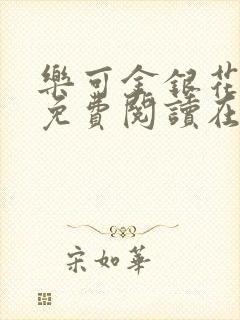 樂可金銀花
免費閱讀在
宋如華